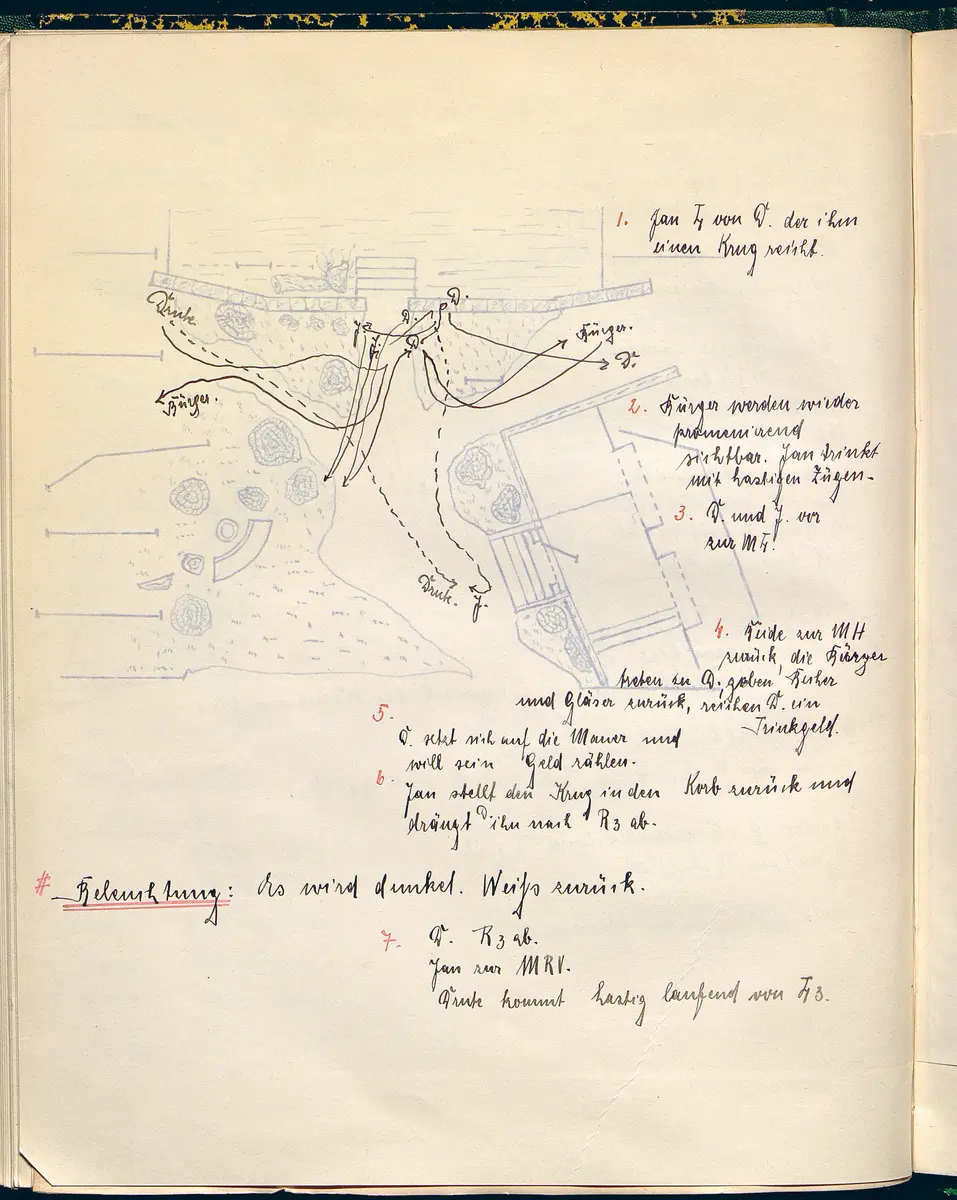 1. Jan L von D. der ihm
einen Krug reicht.
Trute
D.
D.
D.
Bürger.
D.
Bürger.
2. Bürger werden wieder
promenierend
sichtbar. Jan trinkt
mit hastigen Zügen.
3. D. und J. vor
zur ML.
Trute.
J.
4. Beide zur MH
zurück, die Bürger
treten zu D., geben Becher
und Gläser zurück, reichen D. ein
Trinkgeld.
5.
D. setzt sich auf die Mauer und
will sein Geld zählen.
6.
Jan stellt den Krug in den Korb zurück und
drängt ihn nach R3 ab.
# Beleuchtung: Es wird dunkel. Weiß zurück.
7. D. R3 ab.
Jan zur MRV.
Trute kommt hastig laufend von L3.